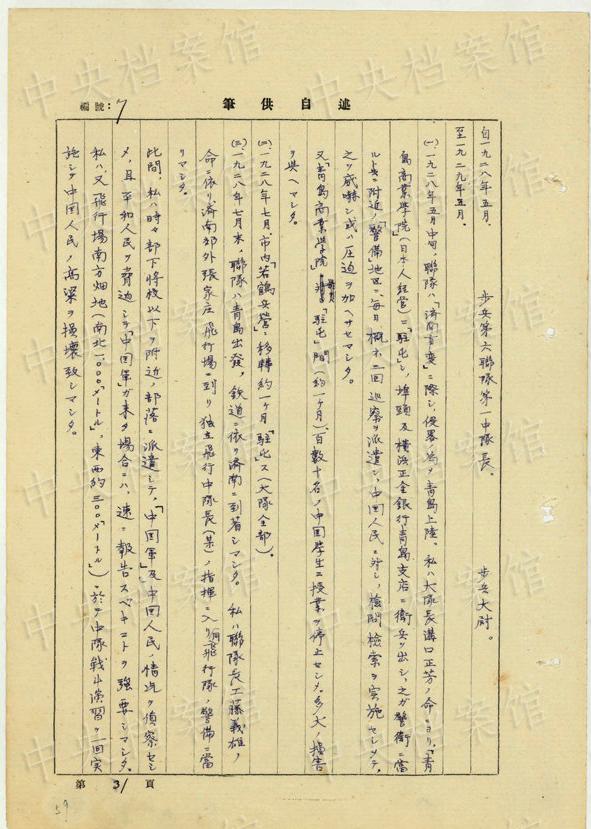 中央档案馆
編號：7
筆供自述
自一九二八年五月、
至一九二九年五月。
歩兵第六聯隊第一中隊長。 歩兵大尉。
(一)、一九二八年五月中旬、聯隊ハ「済南事変」ニ際シ、侵略ノ為メ青島上陸。私ハ大隊長溝口正芳ノ命ニヨリ、「青
島商業学院」(日本人経営)ニ「駐屯」シ、埠頭及横浜正金銀行青島支店ニ衛兵ヲ出シ、之ガ警衛ニ当
ルト共ニ附近ノ「警備」地区ニ毎日概ネ二回巡察ヲ派遣シ、中国人民ニ対シ、検問検索ヲ実施セシメテ、
之ヲ威嚇シ或ハ圧迫ヲ加ヘサセマシタ。
又「青島商業学院」「駐屯」間(約一ケ月)、百数十名ノ中国学生ニ授業ヲ停止セシメ、多大ノ損害
ヲ与ヘマシタ。
(二)、一九二八年七月、市内「若鶴兵営」ニ移轉約一ケ月「駐屯」ス(大隊全部)。
(三)、一九二八年七月末、聯隊ハ青島出発、鉄道ニ依リ済南ニ到着シマシタ。 私ハ聯隊長工藤義雄ノ
命ニ依リ済南郊外張家庄飛行場ニ到リ独立飛行中隊長(某)ノ指揮ニ入リ同飛行隊ノ警備ニ当
リマシタ。
此間、私ハ時々部下将校以下ヲ附近ノ部落ニ派遣シテ、「中国軍」及中国人民ノ情況ヲ偵察セシ
メ、且平和人民ヲ脅迫シテ「中国軍」ガ来タ場合ニハ、速ニ報告スベキコトヲ強要シマシタ。
私ハ、又飛行場南方畑地(南北一、〇〇〇「メートル」、東西約三〇〇「メートル」)ニ於テ中隊戦斗演習ヲ一回実
施シテ中国人民ノ高粱ヲ損壊致シマシタ。
第 31 頁
59